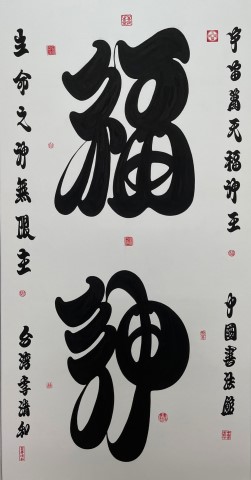 宇宙萬天福神王
中國書法
福神
生命之神無限主
台灣李清和